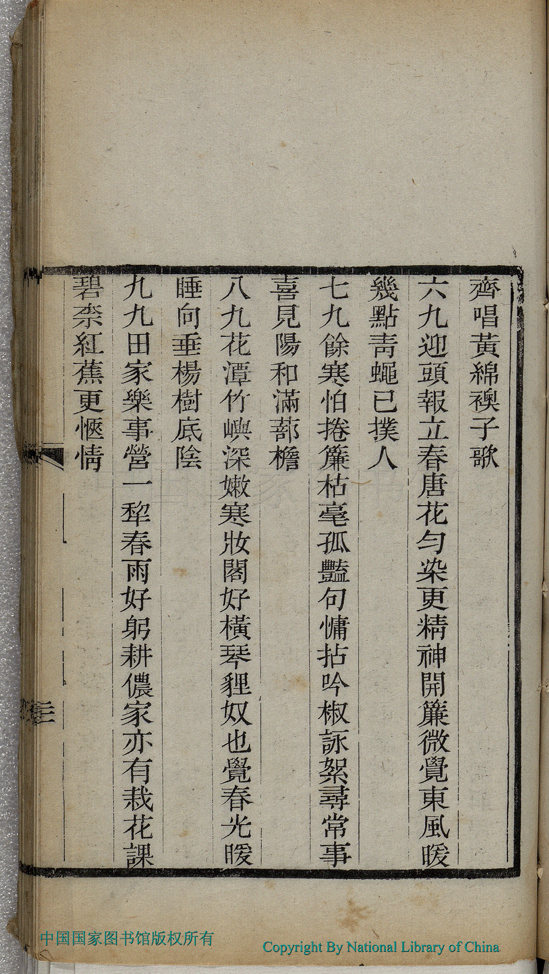 齊唱黃綿襖子歌
六九迎頭報立春唐花勻染更精神開簾微覺東風暖
幾點靑蠅已撲人
七九餘寒怕捲簾枯毫孤豔句慵拈吟椒詠絮尋常事
喜見陽和滿蔀檐
八九花潭竹嶼深嫩寒妝閣好橫琴貍奴也覺春光暖
睡向垂楊樹底陰
九九田家樂事營一犂春雨好躬耕儂家亦有栽花課
碧柰紅蕉更愜情
中国国家图书馆版权所有
Copyright By National Library of China